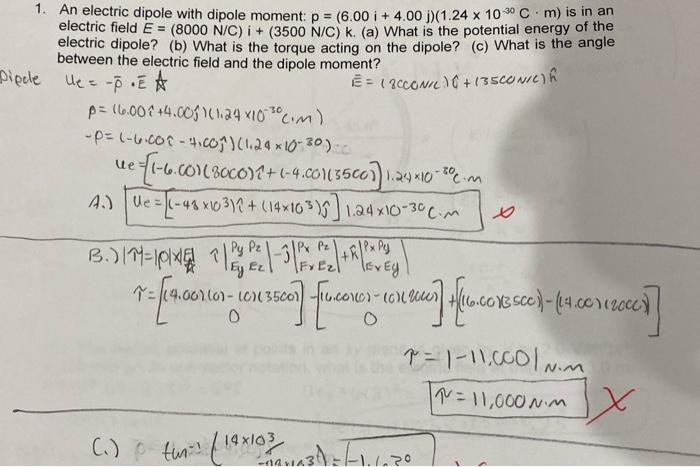 1. An electric dipole with dipole moment: p = (6.00 i + 4.00 j)(1.24 x 10⁻³⁰ C · m) is in an
electric field E = (8000 N/C) i + (3500 N/C) k. (a) What is the potential energy of the
electric dipole? (b) What is the torque acting on the dipole? (c) What is the angle
between the electric field and the dipole moment?
Dipole Ue = -p̄ · Ē ☆ Ē = (8000N/C)î + (3500N/C)k̂
p = (6.00î + 4.00ĵ)(1.24 x10⁻³⁰ C·m)
-p = (-6.00î - 4.00ĵ)(1.24 x 10⁻³⁰)
Ue = [(-6.00)(8000)î + (-4.00)(3500)] 1.24 x10⁻³⁰ C·m
A.) Ue = [(-48 x10³)î + (14x10³)ĵ] 1.24 x10⁻³⁰ C·m
B.) |τ| = |p|x|E| î |Py Pz Ey Ez| - ĵ |Px Pz Ex Ez| + k̂ |Px Py Ex Ey|
τ = [(4.00)(0) - (0)(3500)] - [(6.00)(0) - (0)(8000)] + [(6.00)(3500) - (4.00)(8000)]
0 0
τ = |-11,000| N·m
τ = 11,000 N·m X
C.) tan⁻¹ (14x10³